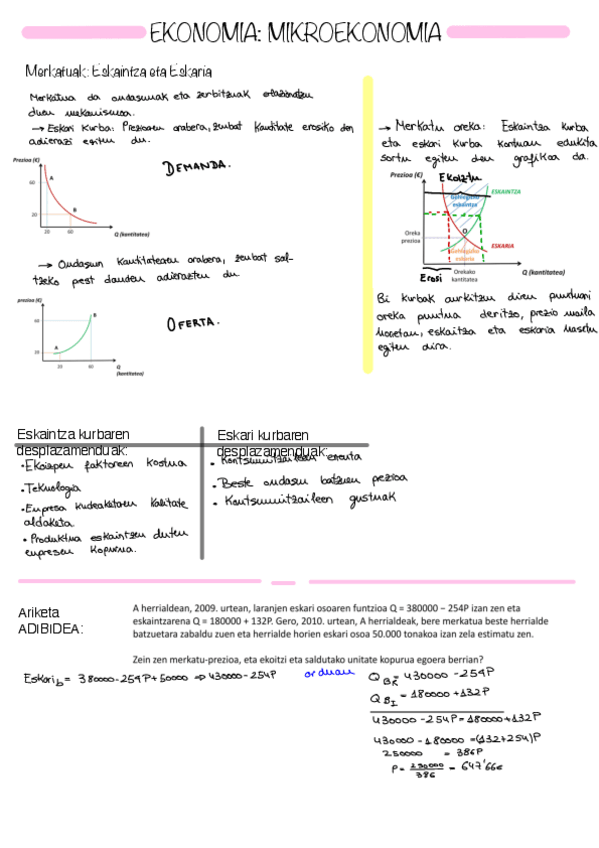 EKONOMIA: MIKROEKONOMIA
Merkatuak: Eskaintza eta Eskaria
Merkatua da ondasunak eta zerbitzuak erlazionatzen
duen mekanismoa.
→ Eskari Kurba: Prezioaren arabera, zenbat Kantitate erosiko den
adierazi egiten du.
Prezioa (€)
60
20
A
B
20
60
Q (kantitatea)
DEMANDA.
→ Ondasun Kantitatearen arabera, zenbat sal-
tzeko prest dauden adierazten du
prezioa (€)
60
20
A
B
20
60
Q
(kantitatea)
OFERTA.
→ Merkatu oreka: Eskaintza kurba
eta eskari kurba kontuan edukita
sortu egiten den grafikoa da.
Prezioa (€)
Ekoiztu
ESKAINTZA
Gehiegizko
eskaintza
Oreka
prezioa
O
ESKARIA
Gehiegizko
eskaria
Erosi
Orekako
kantitatea
Q (kantitatea)
Bi kurbak aurkitzen diren puntuari
oreka puntua deritzo, prezio maila
honetan, eskaintza eta eskaria
egiten dira.
Eskaintza kurbaren
desplazamenduak:
• Ekoizpen faktoreen kostua
• Teknologia
• Enpresa kudeaketaren kalitate
aldaketa
• Produktua eskaintzen duten
enpresen kopurua.
Eskari kurbaren
desplazamenduak:
• Kontsumitzaileen errenta
• Beste ondasun batzuen prezioa
• Kontsumitzaileen gustuak
Ariketa
ADIBIDEA:
A herrialdean, 2009. urtean, laranjen eskari osoaren funtzioa Q = 380000 – 254P izan zen eta
eskaintzarena Q = 180000 + 132P. Gero, 2010. urtean, A herrialdeak, bere merkatua beste herrialde
batzuetara zabaldu zuen eta herrialde horien eskari osoa 50.000 tonakoa izan zela estimatu zen.
Zein zen merkatu-prezioa, eta ekoitzi eta saldutako unitate kopurua egoera berrian?
Eskari b = 380000-254P+50000 ⇒ 430000-254P
orduan
Q BR = 430000 -254P
Q BI = 180000 +132P
430000 - 254P = 180000+132P
430000 - 180000 = (132+254)P
250000 = 386P
P = 250000/386 = 647'66€